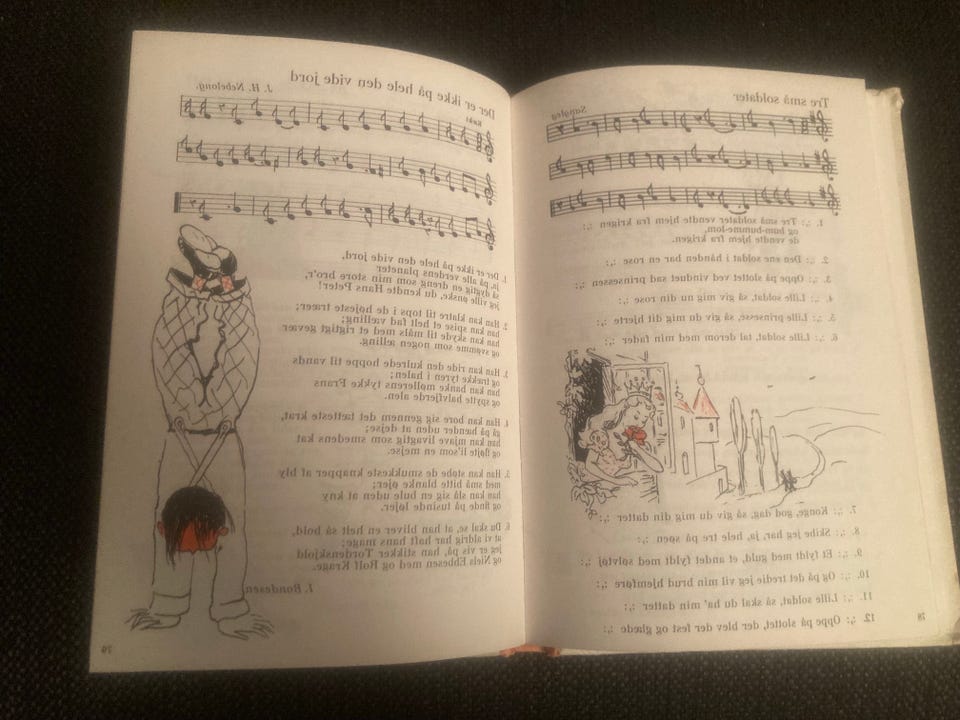 Tre små soldater
Sangleg
1. :,: Tre små soldater vendte hjem fra krigen :,:
og bum-bumme-lom,
de vendte hjem fra krigen.
2. :,: Den ene soldat i hånden bar en rose :,:
3. :,: Oppe på slottet ved vinduet sad prinsessen :,:
4. :,: Lille soldat, så giv mig nu din rose :,:
5. :,: Lille prinsesse, så giv du mig dit hjerte :,:
6. :,: Lille soldat, tal derom med min fader :,:
7. :,: Konge, god dag, så giv du mig din datter :,:
8. :,: Skibe jeg har, ja, hele tre på søen :,:
9. :,: Et fyldt med guld, et andet fyldt med sølvtøj :,:
10. :,: Og på det tredie jeg vil min brud hjemføre :,:
11. :,: Lille soldat, så skal du ha' min datter :,:
12. :,: Oppe på slottet, der blev der fest og glæde :,:
78
Der er ikke på hele den vide jord
Raskt
J. H. Nebelong.
1. Der er ikke på hele den vide jord,
ja, på alle verdens planeter
så dygtig en dreng som min store bro'r,
jeg ville ønske, du kendte Hans Peter!
2. Han kan klatre til tops i de højeste træer;
han kan spise et helt fad vælling;
han kan skyde til måls med et rigtigt gevær
og svømme som nogen ælling.
3. Han kan ride den kulrede hoppe til vands
og trække tyren i halen;
han kan banke møllerens tykke Frans
og spytte halvfjerde alen.
4. Han kan bore sig gennem det tætteste krat,
gå på hænder uden at dejse;
han kan mjave livagtig som smedens kat
og fløjte li'som en mejse.
5. Han kan støbe de smukkeste knapper af bly
med små bitte blanke øjer;
han kan slå sig en bule uden at kny
og finde på tusinde løjer.
6. Du skal se, at han bliver en helt så bold,
at vi aldrig har haft hans mage;
jeg er vis på, han stikker Tordenskjold
og Niels Ebbesen med og Rolf Krage.
I. Bondesen
79